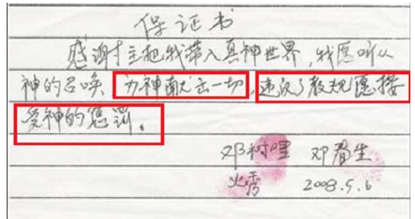 保证书
感谢主把我带入真神世界，我愿听从
神的召唤 为神献出一切，违反了教规愿接
受神的惩罚。
邓树 邓春生
火秀 2008.5.6